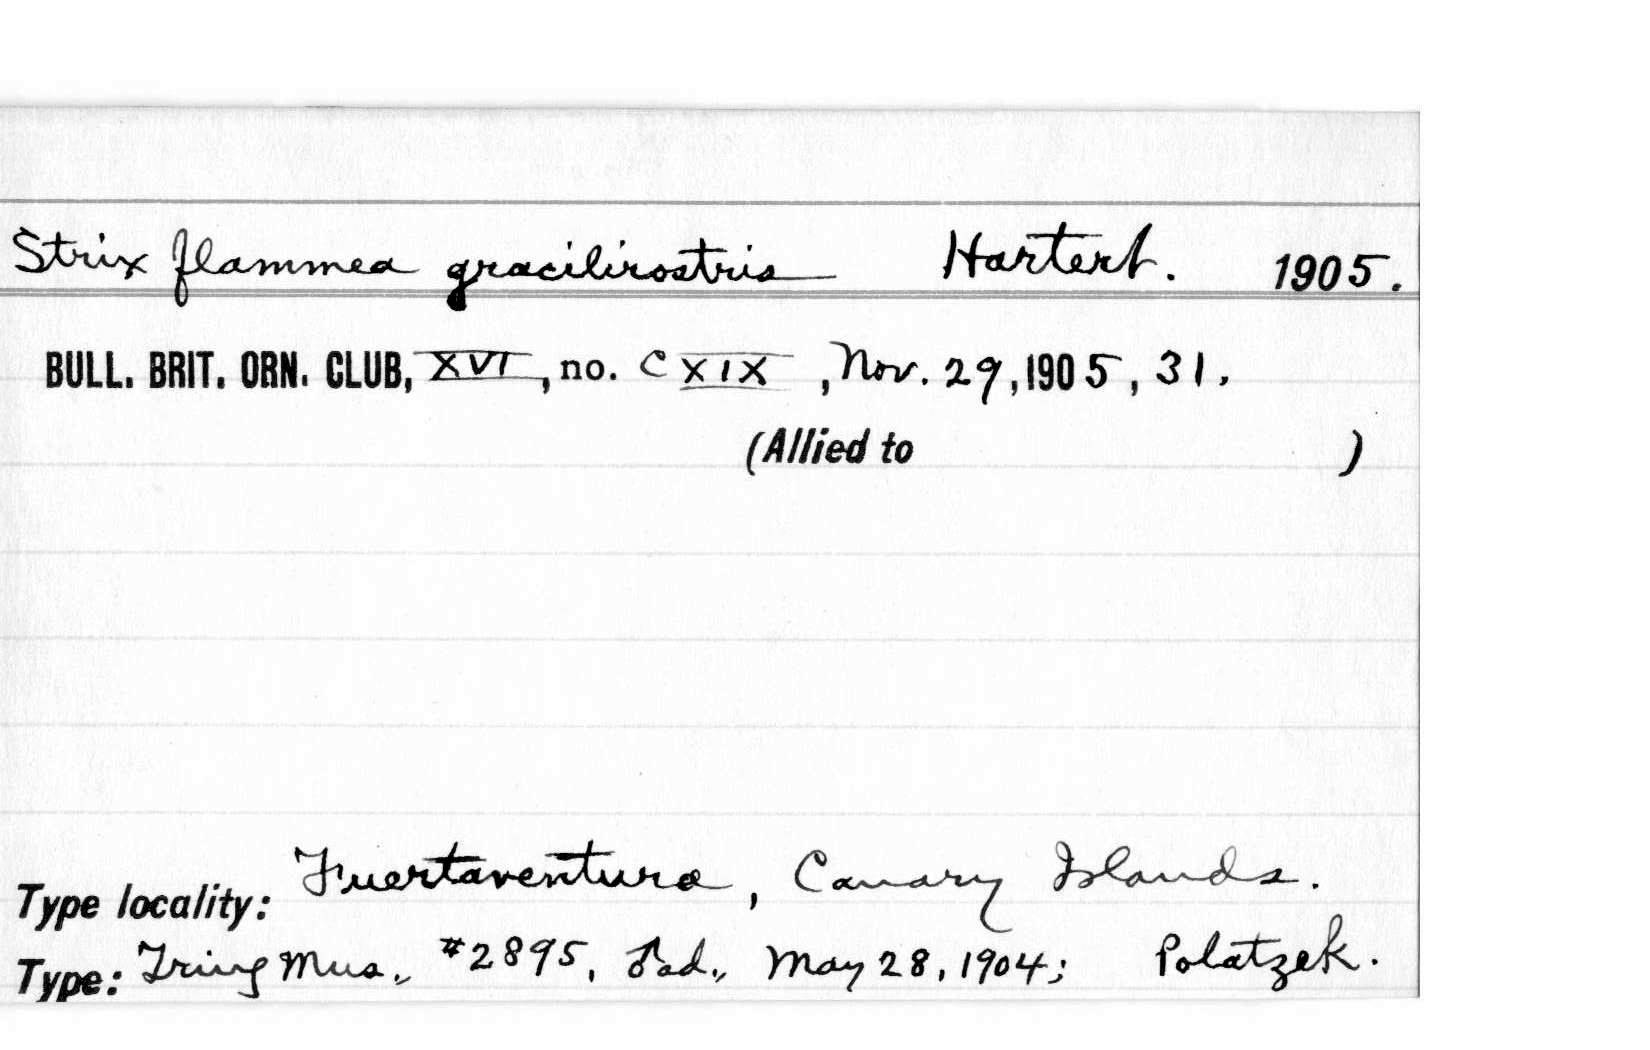 Strix flammea gracilirostris Hartert. 1905.
BULL. BRIT. ORN. CLUB, XVI, no. CXIX, Nov. 29, 1905, 31.
(Allied to )
Type locality: Fuertaventura, Canary Islands.
Type: Tring Mus., #2895, ♂ad., May 28, 1904; Polatzek.